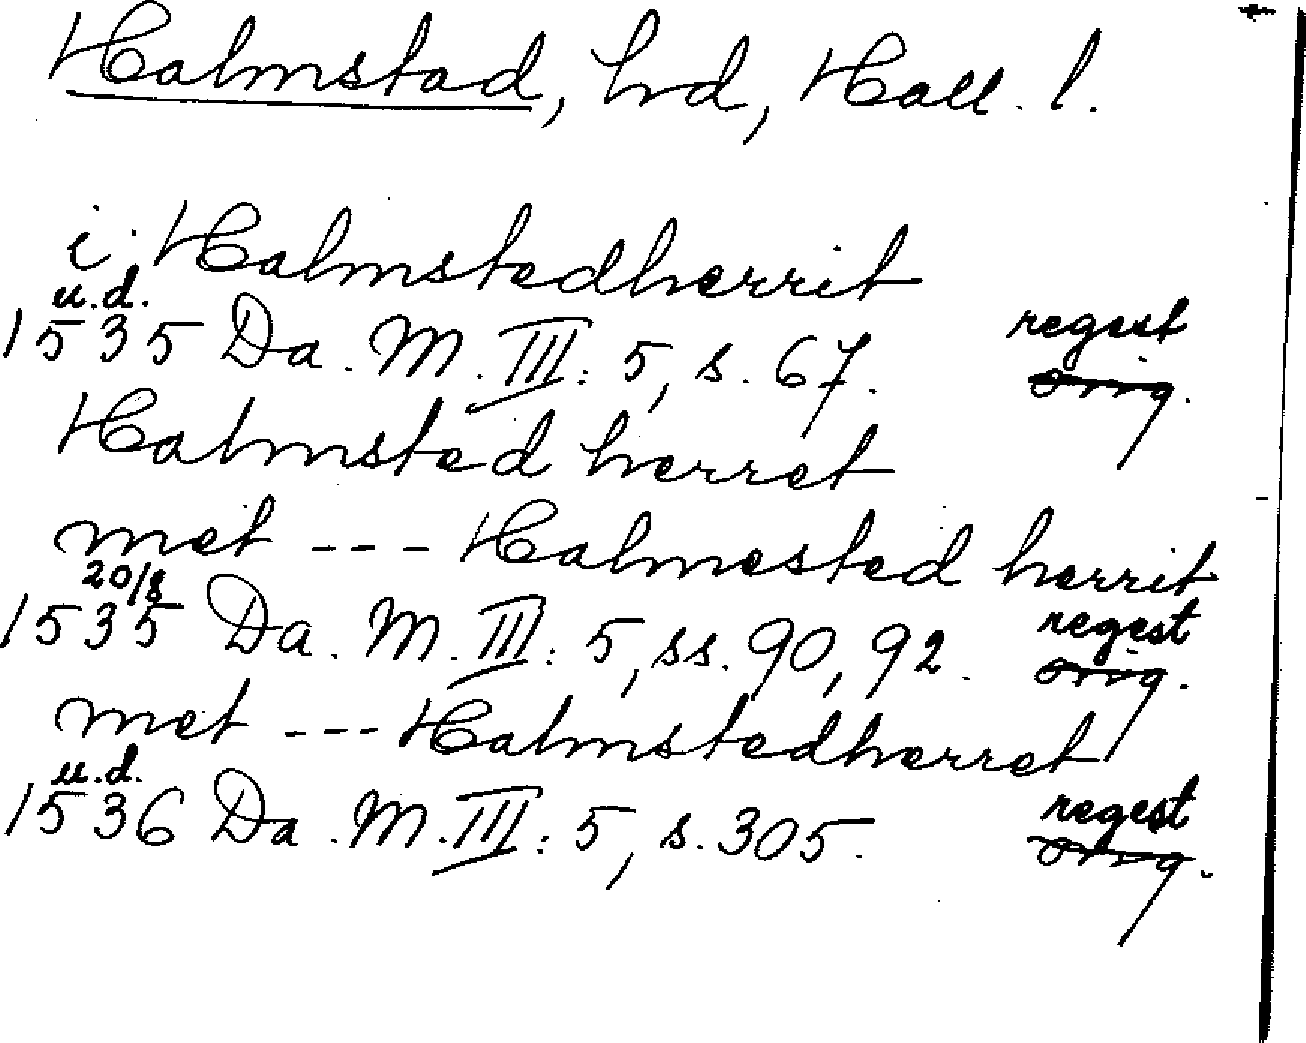 Halmstad, hd, Hall. l.
i Halmstedherrit
u.d.
1535 Da. M. III: 5, s. 67. regest
orig.
Halmsted herret
met --- Halmested herrit
20/8
1535 Da. M. III: 5, ss. 90, 92. regest
orig.
met --- Halmstedherret
u.d.
1536 Da. M. III: 5, s. 305. regest
orig.